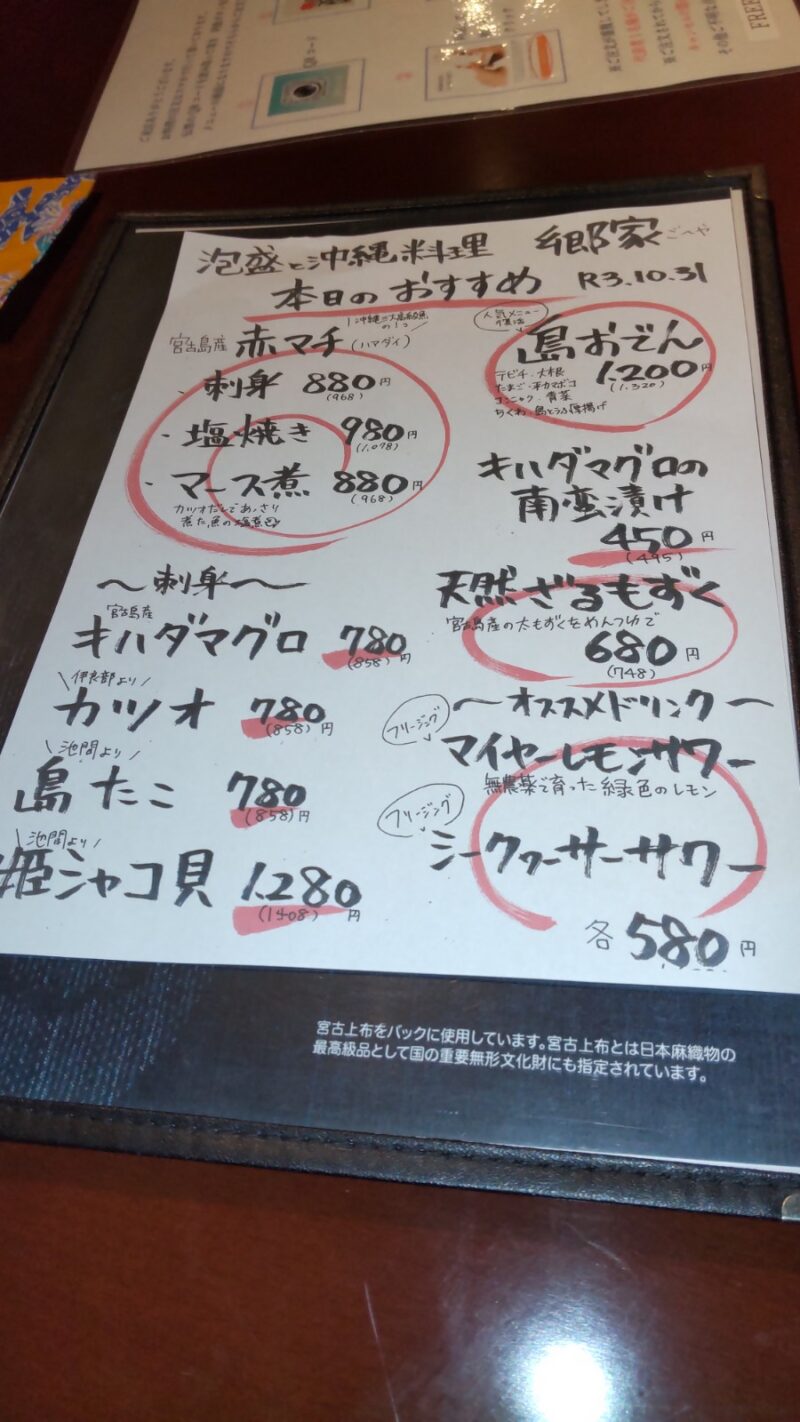 QRコード
FREE
泡盛と沖縄料理 郷家 ごーや
本日のおすすめ R3.10.31
沖縄三大高級魚の1つ
宮古島産 赤マチ(ハマダイ)
・刺身 880円
(968)
・塩焼き 980円
(1,078)
・マース煮 880円
(968)
カツオだしであっさり
煮た魚の塩煮込
〜刺身〜
宮古島産
キハダマグロ 780
(858)円
伊良部より
カツオ 780
(858)円
池間より
島たこ 780
(858)円
池間より
姫シャコ貝 1,280
(1408)円
人気メニュー
復活
島おでん
1,200円
(1,320)
テビチ・大根
たまご・赤カマボコ
コンニャク・青菜
ちくわ・島とうふ厚揚げ
キハダマグロの
南蛮漬け
450円
(495)
天然ざるもずく
宮古島産の太もずくをめんつゆで
680円
(748)
〜オススメドリンク〜
フリージング
マイヤーレモンサワー
無農薬で育った緑色のレモン
フリージング
シークヮーサーサワー
各580円
宮古上布をバックに使用しています。宮古上布とは日本麻織物の
最高級品として国の重要無形文化財にも指定されています。